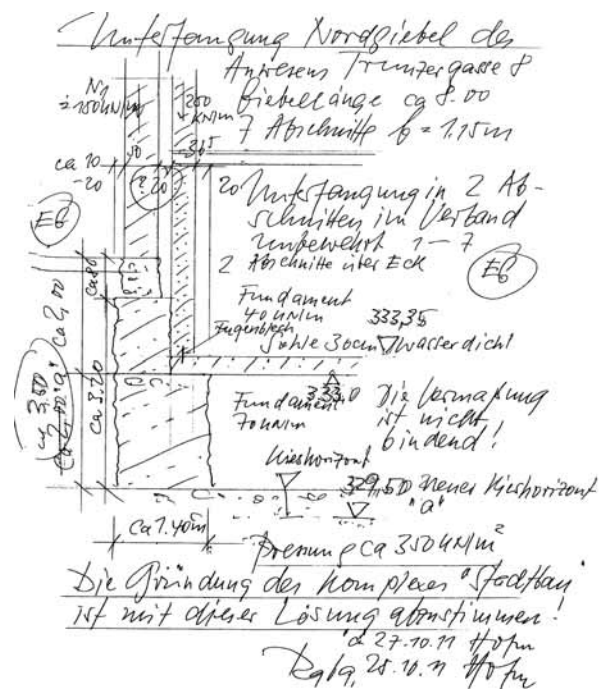 Unterfangung Nordgiebel des
Anwesens Trunzergasse 8
Giebellänge ca 8.00
7 Abschnitte b = 1.15m
N1
≥ 150 kN/m
200
kN/m
50
36⁵
ca 10
-20
? 20
20
Unterfangung in 2 Ab-
schnitten im Verband
unbewehrt 1 – 7
2 Abschnitte über Eck
EG
EG
ca 80
Fundament
40 kN/m
Fugenblech
333,35
Sohle 30cm wasserdicht
ca 3,50
ca 2,00
"a"
ca 3.20
333,0
Fundament
70 kN/m
Die Vermaßung
ist nicht
bindend!
Kieshorizont
329,50 neuer Kieshorizont
"a"
ca 1.40m
Pressung ca 350 kN/m²
Die Gründung des Komplexes "Stadtbau"
ist mit dieser Lösung abzustimmen!
"a" 27.10.11 Hofm
Rgbg, 25.10.11 Hofm